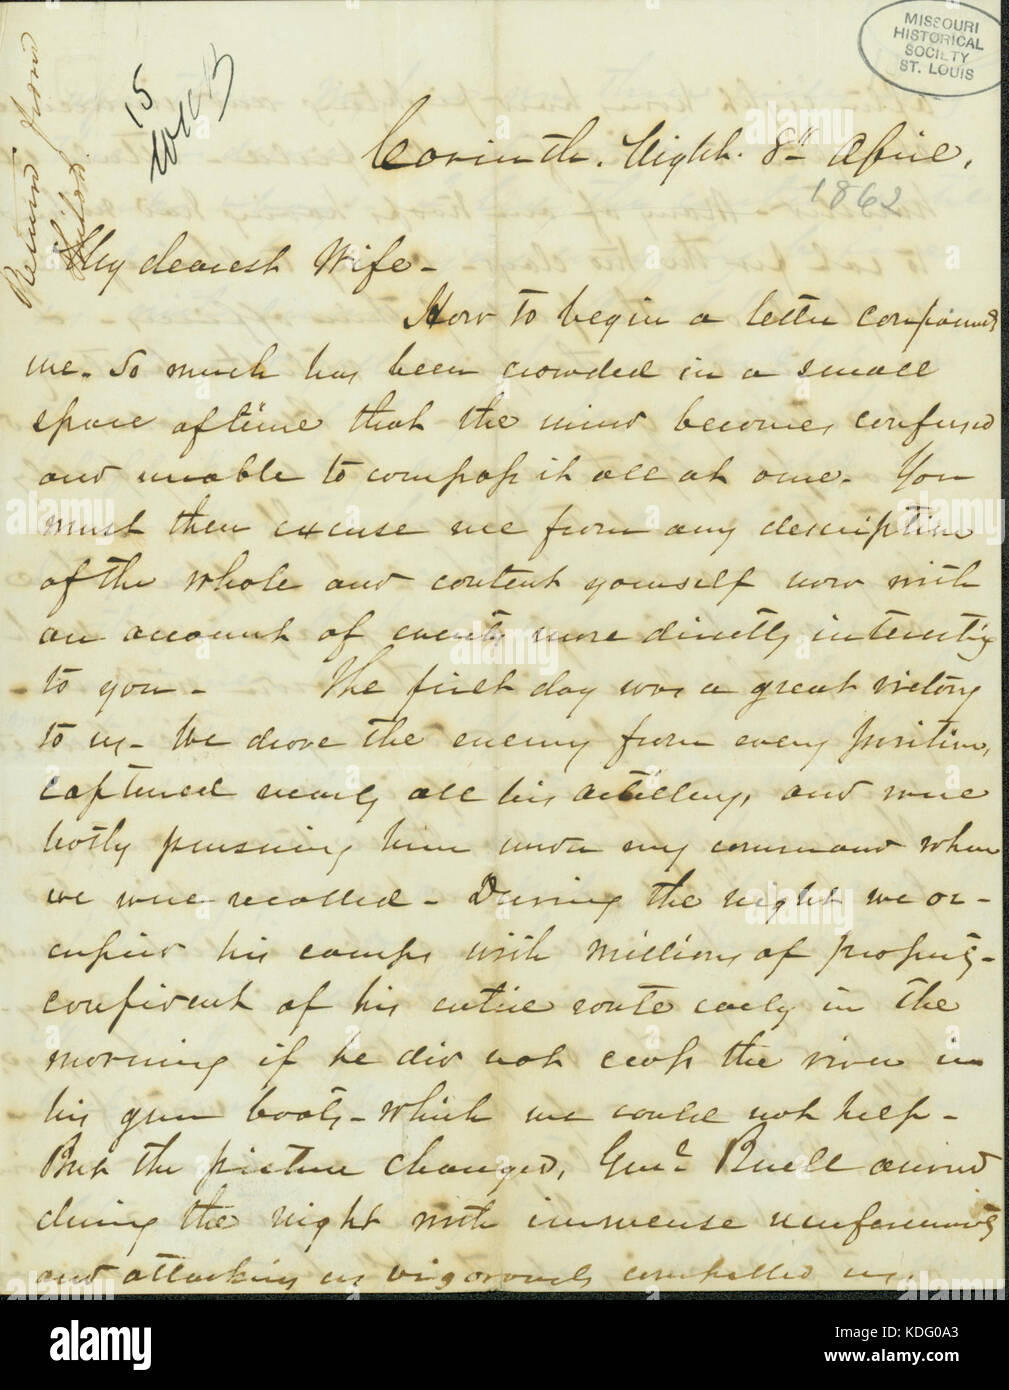 MISSOURI
HISTORICAL
SOCIETY
ST. LOUIS
15
Return from
Shiloh
Corinth. Night. 8th April,
1862
My dearest Wife -
How to begin a letter compounds
me. So much has been crowded in a small
space of time that the mind becomes confused
and unable to compass it all at once. You
must then excuse me from any description
of the whole and content yourself now with
an account of events more directly interesting
to you - The first day was a great victory
to us - We drove the enemy from every position,
captured nearly all his artillery, and were
hotly pursuing him under my command when
we were recalled - During the night we oc-
cupied his camps with millions of property -
confident of his entire route early in the
morning if he did not cross the river in
his gun boats - which we could not help -
But the picture changed, Genl Buell arrived
during the night with immense reinforcements
and attacking us vigorously compelled us,
alamy
Image ID: KDG0A3
www.alamy.com